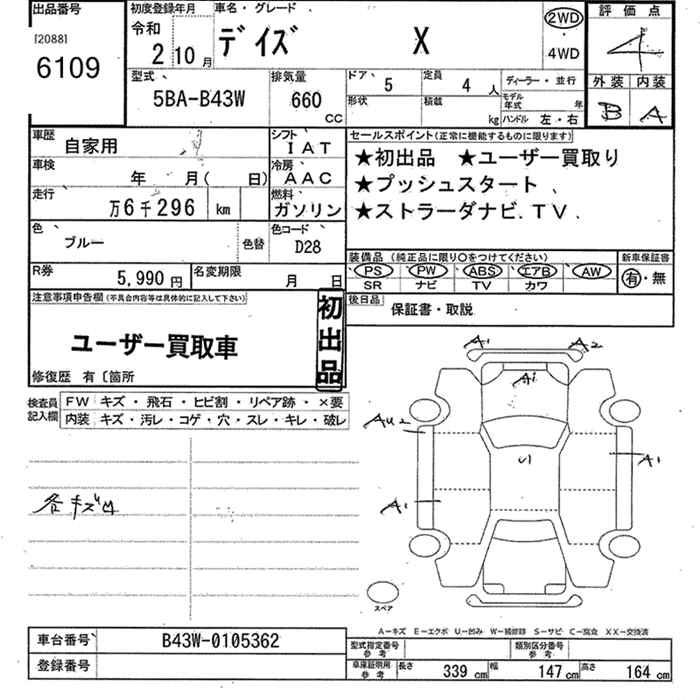 出品番号
[2088]
6109
初度登録年月
令和
2 10月
車名・グレード
デイズ X
2WD
・
4WD
評価点
4
外装 内装
B A
型式
5BA-B43W
排気量
660
CC
ドア 5
定員 4 人
形状
積載 kg
ディーラー・並行
モデル年式 年
ハンドル 左・右
車歴 自家用
シフト IAT
車検 年 月( 日)
冷房 AAC
走行 万6千296 km
燃料 ガソリン
色 ブルー
色替
色コード D28
R券 5,990円
名変期限 月 日
セールスポイント(正常に機能するものに限ります)
★初出品 ★ユーザー買取り
★プッシュスタート
★ストラーダナビ.TV.
装備品 (純正品に限り○をつけてください)
PS PW ABS エアB AW
SR ナビ TV カワ
新車保証書
有・無
後日品 保証書・取説
注意事項申告欄(不具合内容等は具体的に記入して下さい)
初出品
ユーザー買取車
修復歴 有〔箇所
検査員記入欄
FW キズ・飛石・ヒビ割・リペア跡・×要
内装 キズ・汚レ・コゲ・穴・スレ・キレ・破レ
各キズ凹
A1 A2
A1
AU2
A1
A1
スペア
A―キズ E―エクボ U―凹み W―補修跡 S―サビ C―腐食 XX―交換済
車台番号 B43W-0105362
登録番号
型式指定番号 参考
類別区分番号 参考
車庫証明用 参考
長さ 339 cm 幅 147 cm 高さ 164 cm